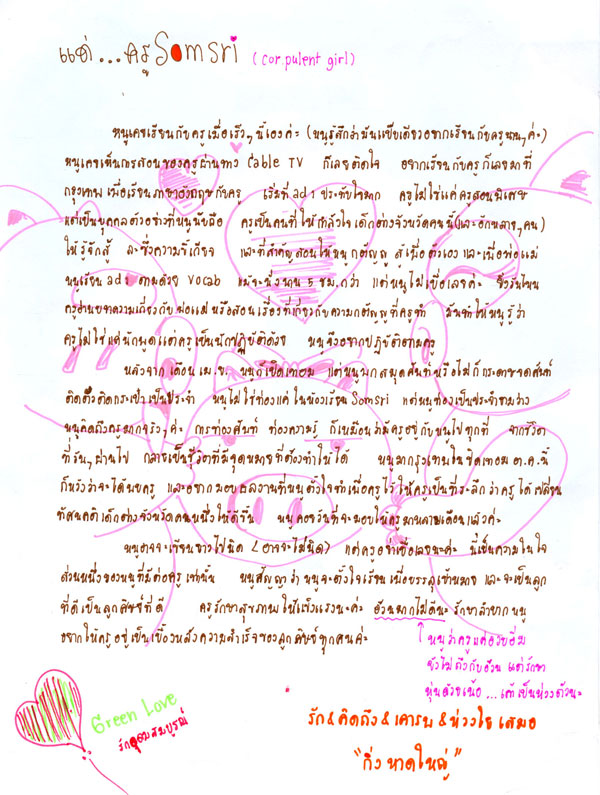 แด่...ครู Somsri (Cor.pulent girl)
หนูเคยเรียนกับครูเมื่อเร็วๆนี้เองค่ะ (หนูรู้สึกว่ามันแป๊บเดียวอยากเรียนกับครูนานๆค่ะ)
หนูเคยเห็นการสอนของครูผ่านทาง Cable TV ก็เลยติดใจ อยากเรียนกับครูก็เลยมาที่
กรุงเทพ เพื่อเรียนภาษาอังกฤษกับครู เริ่มที่ ad1 ประทับใจมาก ครูไม่ใช่แค่ครูสอนพิเศษ
แต่เป็นบุคคลตัวอย่างที่หนูนับถือ ครูเป็นคนที่ให้กำลังใจเด็กต่างจังหวัดคนนี้(และอีกหลายๆคน)
ให้รู้จักสู้ ละซึ่งความขี้เกียจ และที่สำคัญสอนให้หนูกตัญญู สู้เพื่อตัวเองและเพื่อพ่อแม่
หนูเรียน ad1 ตามด้วย vocab แม้จะนั่งนาน 5 ชม. กว่า แต่หนูไม่เบื่อเลยค่ะ ยิ่งวันไหน
ครูอ่านบทความเกี่ยวกับพ่อแม่ หรือสอนเรื่องที่เกี่ยวกับความกตัญญูที่ครูทำ มันทำให้หนูรู้ว่า
ครูไม่ใช่แค่นักพูดแต่ครูเป็นนักปฏิบัติด้วย หนูจึงอยากปฏิบัติตามครู
หลังจากเดือน เม.ย. หนูก็เปิดเทอม แต่หนูพกสมุดศัพท์หรือไม่ก็กระดาษจดศัพท์
ติดตัวติดกระเป๋าเป็นประจำ หนูไม่ใช่ท่องแค่ในห้องเรียน Somsri แต่หนูท่องเป็นประจำยามว่าง
หนูคิดถึงครูมากจริงๆค่ะ การท่องศัพท์ ท่องความรู้ ก็เหมือนว่ามีครูอยู่กับหนูไปทุกที่ จากชีวิต
ที่วันๆผ่านไป กลายเป็นชีวิตที่มีจุดหมายที่ต้องทำให้ได้ หนูมากรุงเทพในปิดเทอม ต.ค. นี้
ก็หวังว่าจะได้พบครู และอยากมอบผลงานที่หนูตั้งใจทำเพื่อครูไว้ให้ครูเป็นที่ระลึกว่าครูได้เปลี่ยน
ทัศนคติเด็กต่างจังหวัดคนหนึ่งให้ดีขึ้น หนูคอยวันที่จะมอบให้ครูมาหลายเดือนแล้วค่ะ
หนูอาจจะเขียนยาวไปนิด (อาจจะไม่นิด) แต่ครูอย่าเบื่อเลยนะค่ะ นี่เป็นความในใจ
ส่วนหนึ่งของหนูที่มีต่อครูเท่านั้น หนูสัญญาว่า หนูจะตั้งใจเรียนเพื่อบรรลุเป้าหมาย และจะเป็นลูก
ที่ดีเป็นลูกศิษย์ที่ดี ครูรักษาสุขภาพให้แข็งแรงนะค่ะ อ้วนมากไม่ดีนะ รักษาลำบาก หนู
อยากให้ครูอยู่เป็นเบื้องหลังความสำเร็จของลูกศิษย์ทุกคนค่ะ
↑ หนูว่าครูแค่อวบอิ่ม
ยังไม่ถึงกับอ้วน แต่รักษา
หุ่นด้วยเน้อ ...เค้าเป็นห่วงตัวนะ
Green Love
รักสมบูรณ์
รัก&คิดถึง&เคารพ&ห่วงใย เสมอ
"กิ่ง หาดใหญ่"